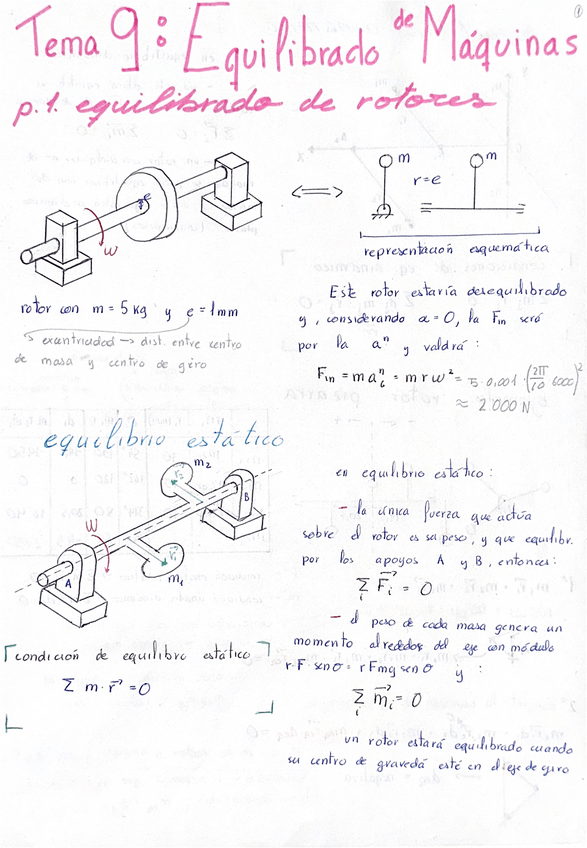 ①
Tema 9: Equilibrado de Máquinas
p.1. equilibrado de rotores
e
ω
m
r=e
m
representación esquemática
rotor con m = 5 kg y e = 1 mm
excentricidad → dist. entre centro
de masa y centro de giro
Este rotor estaría desequilibrado
y, considerando α = 0, la Fin será
por la aⁿ y valdrá:
Fin = m aⁿ = m r ω² = 5 · 0,001 · (2π/60 6000)²
≈ 2.000 N
equilibrio estático
m2
r2
B
ω
r1
A
m1
en equilibrio estático:
- la única fuerza que actúa
sobre el rotor es su peso, y que equilibr.
por los apoyos A y B, entonces:
Σi F⃗i = 0
- el peso de cada masa genera un
momento alrededor del eje con módulo
r·F·senσ = rFmg senσ y:
Σi m⃗i = 0
condición de equilibro estático
Σ m · r⃗ = 0
un rotor estará equilibrado cuando
su centro de gravedá esté en el eje de giro